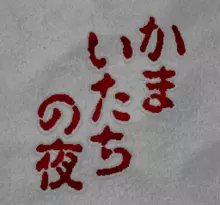 かま
いたち
の夜